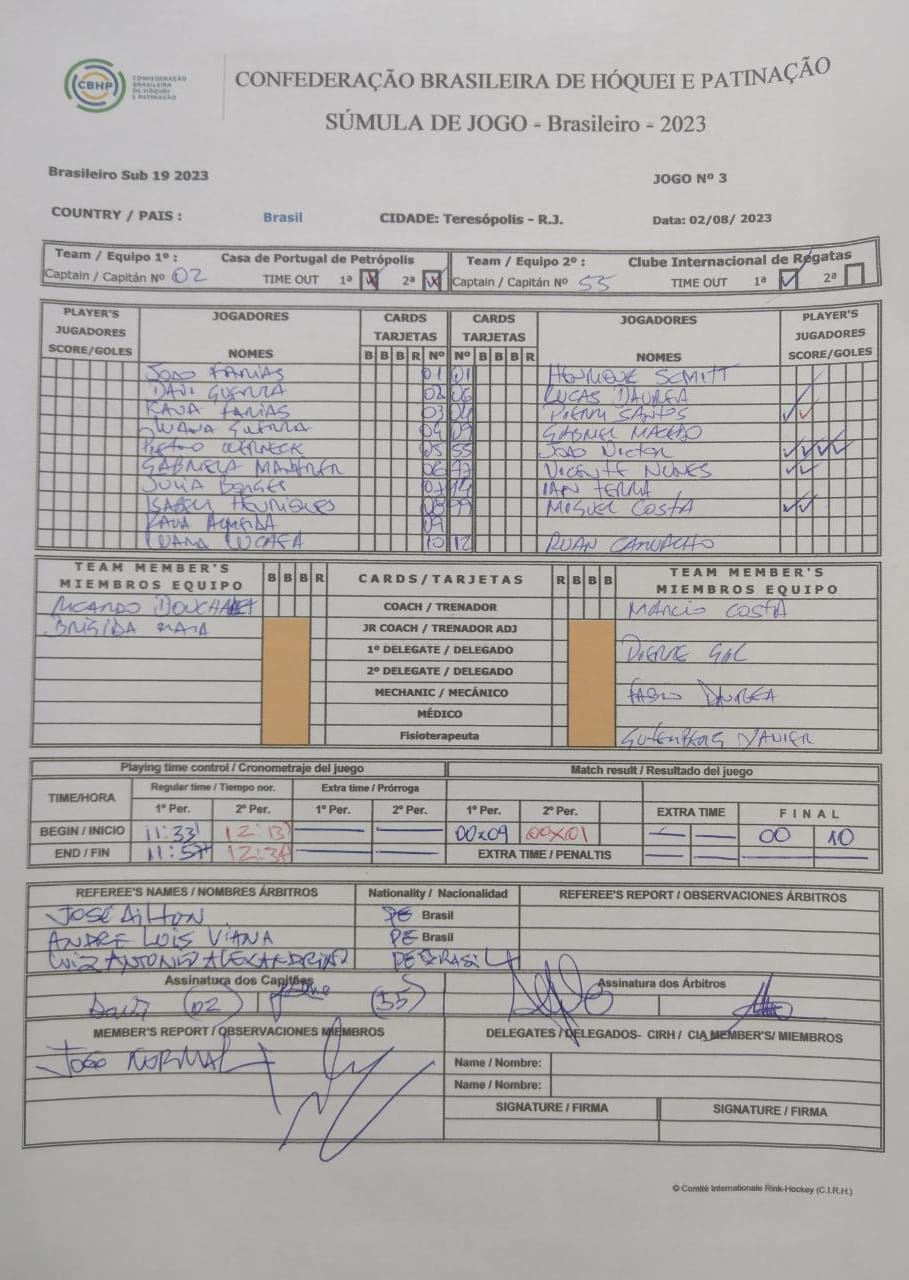 CBHP CONFEDERAÇÃO BRASILEIRA DE HÓQUEI E PATINAÇÃO
CONFEDERAÇÃO BRASILEIRA DE HÓQUEI E PATINAÇÃO
SÚMULA DE JOGO - Brasileiro - 2023
Brasileiro Sub 19 2023 JOGO Nº 3
COUNTRY / PAIS : Brasil CIDADE: Teresópolis - R.J. Data: 02/08/ 2023
Team / Equipo 1º : Casa de Portugal de Petrópolis Team / Equipo 2º : Clube Internacional de Regatas
Captain / Capitán Nº 02 TIME OUT 1ª 2ª Captain / Capitán Nº 55 TIME OUT 1ª 2ª
PLAYER'S JOGADORES CARDS CARDS JOGADORES PLAYER'S
JUGADORES TARJETAS TARJETAS JUGADORES
SCORE/GOLES NOMES B B B R Nº Nº B B B R NOMES SCORE/GOLES
JOÃO FARIAS 01 01 HENRIQUE SCMITT
DAVI GUERRA 02 06 LUCAS DAUREA
KAUA FARIAS 03 04 PIERRY SANTOS
LUANA GUERRA 04 09 GABRIEL MACEDO
PIETRO WERNECK 05 55 JOÃO VICTOR
GABRIELA 06 77 VICENTE NUNES
JULIA BORGES 07 14 IAN TERRA
ISABELI HENRIQUES 08 99 MIGUEL COSTA
KAUA ALMEIDA 09
LUANA 10 12 RUAN CARVALHO
TEAM MEMBER'S B B B R CARDS/TARJETAS R B B B TEAM MEMBER'S
MIEMBROS EQUIPO MIEMBROS EQUIPO
RICARDO COACH / TRENADOR MÁRCIO COSTA
BRIGIDA MAIA JR COACH / TRENADOR ADJ
1º DELEGATE / DELEGADO PIERRE GAL
2º DELEGATE / DELEGADO
MECHANIC / MECÁNICO FABIO DAUREA
MÉDICO
Fisioterapeuta GUTENBERG XAVIER
Playing time control / Cronometraje del juego Match result / Resultado del juego
TIME/HORA Regular time / Tiempo nor. Extra time / Prórroga
1º Per. 2º Per. 1º Per. 2º Per. 1º Per. 2º Per. EXTRA TIME F I N A L
BEGIN / INICIO 11:33 12:13 00x09 00x01 00 10
END / FIN 11:57 12:37 EXTRA TIME / PENALTIS
REFEREE'S NAMES / NOMBRES ÁRBITROS Nationality / Nacionalidad REFEREE'S REPORT / OBSERVACIONES ÁRBITROS
JOSÉ AILTON PE Brasil
ANDRE LUIS VIANA PE Brasil
LUIZ ANTONIO ALEXANDRINO PE BRASIL
Assinatura dos Capitães Assinatura dos Árbitros
Davi (02) (55)
MEMBER'S REPORT / OBSERVACIONES MIEMBROS DELEGATES / DELEGADOS- CIRH / CIA MEMBER'S/ MIEMBROS
JOGO NORMAL
Name / Nombre:
Name / Nombre:
SIGNATURE / FIRMA SIGNATURE / FIRMA
© Comité Internationale Rink-Hockey (C.I.R.H.)